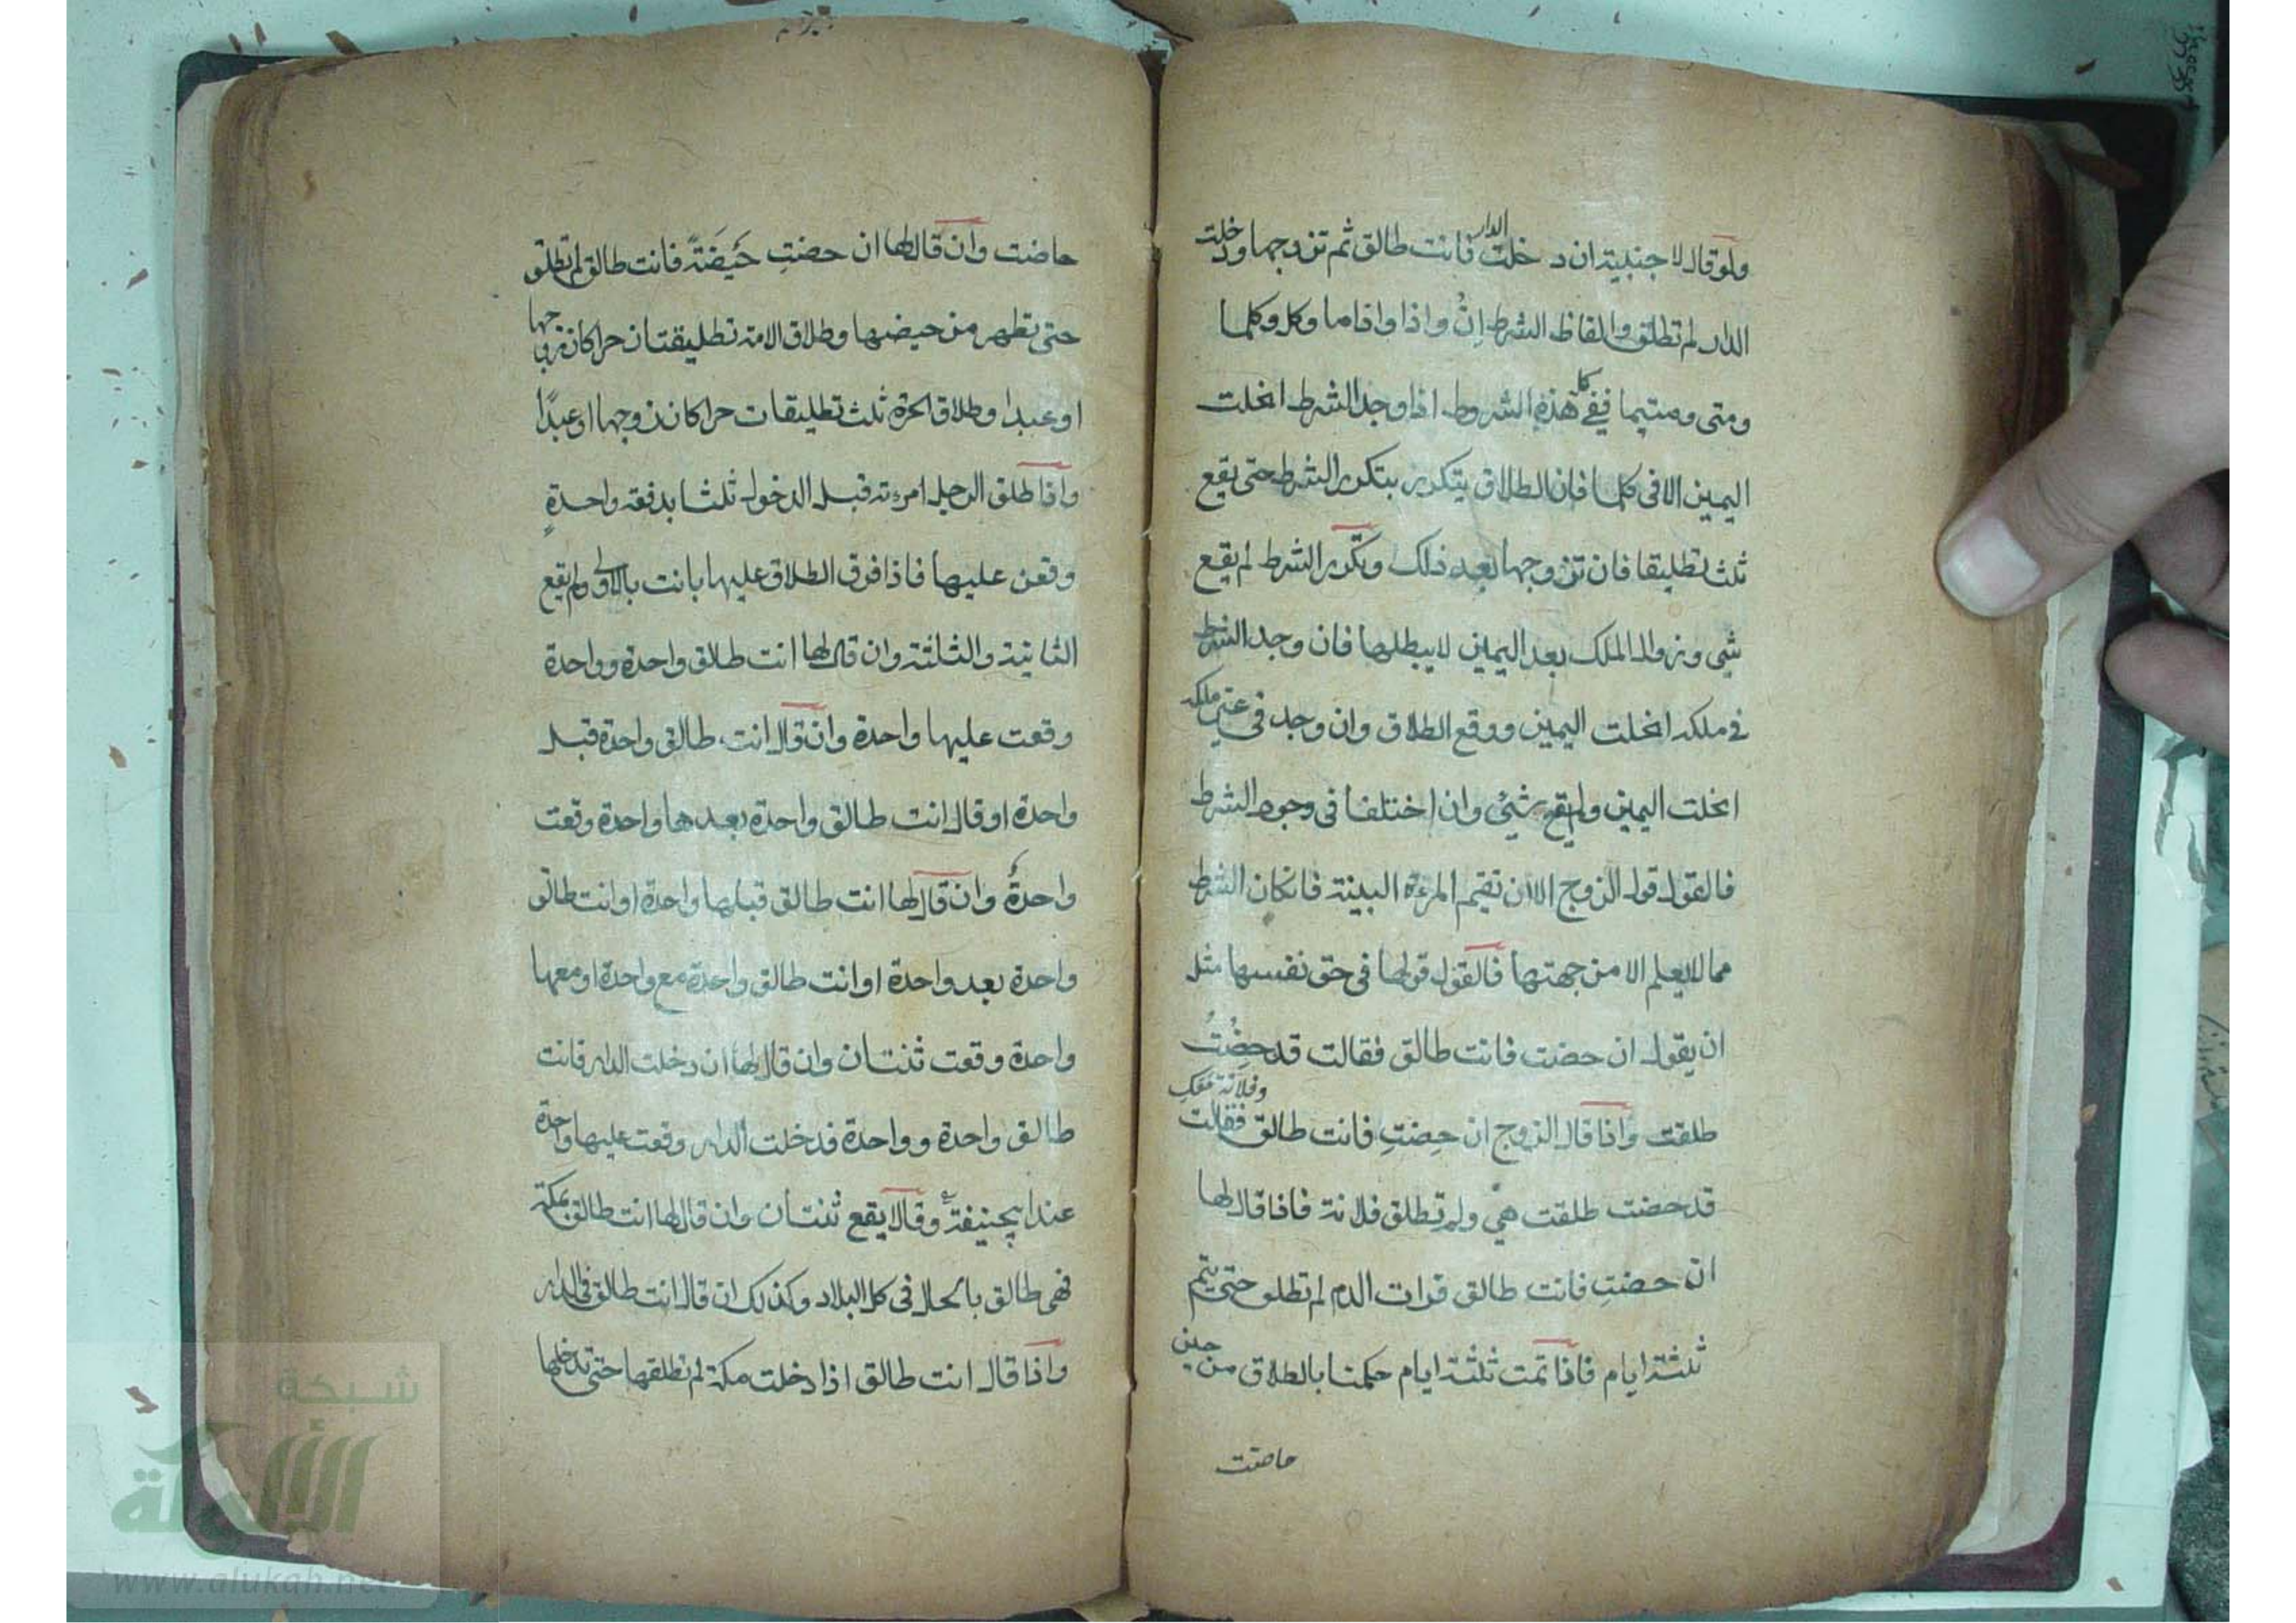 ولو قال لاجنبية ان دخلت الدار فانت طالق ثم تزوجها ودخلت
الدار لم تطلق والفاظ الشرط اِنْ واذا واذاما وكل وكلما
ومتى ومتيما ففي كل هذه الشروط اذا وجد الشرط انحلت
اليمين الا في كلما فان الطلاق يتكرر بتكرر الشرط حتى يقع
ثلث تطليقا فان تزوجها بعد ذلك وتكرر الشرط لم يقع
شي وزوال الملك بعد اليمين لا يبطلها فان وجد الشرط
في ملكه انحلت اليمين ووقع الطلاق وان وجد في غير ملكه
انحلت اليمين ولم يقع شيئ وان اختلفا في وجود الشرط
فالقول قول الزوج الا ان تقيم المرءة البينة فان كان الشرط
مما لا يعلم الا من جهتها فالقول قولها في حق نفسها مثل
ان يقول ان حضت فانت طالق فقالت قد حِضْتُ
طلقت واذا قال الزوج ان حِضتِ فانت طالق وفلانة معكِ فقالت
قد حضت طلقت هي ولم تطلق فلانة فاذا قال لها
ان حضتِ فانت طالق فرات الدم لم تطلق حتى يتم
ثلثة ايام فاذا تمت ثلثة ايام حكمنا بالطلاق من حين
حاضت
حاضت وان قال لها ان حضتِ حَيضَةً فانت طالق لم تطلق
حتى تطهر من حيضها وطلاق الامة تطليقتان حرا كان زوجها
او عبدا وطلاق الحرة ثلث تطليقات حرا كان زوجها او عبدًا
واذا طلق الرجل امرءته قبل الدخول ثلثا بدفعة واحدةٍ
وقعن عليها فاذا فرق الطلاق عليها بانت بالاولى ولم يقع
الثانية والثلثة وان قال لها انت طلاق واحدة وواحدة
وقعت عليها واحدة وان قال انت طالق واحدة قبل
واحدة او قال انت طالق واحدة بعدها واحدة وقعت
واحدةٌ وان قال لها انت طالق قبلها واحدة او انت طالق
واحدة بعد واحدة او انت طالق واحدة مع واحدة او معها
واحدة وقعت ثنتان وان قال لها ان دخلت الدار فانت
طالق واحدة وواحدة فدخلت الدار وقعت عليها واحدة
عند ابيحنيفة وقالا يقع ثنتان وان قال لها انت طالق بمكة
فهى طالق بالحال في كل البلاد وكذلك ان قال انت طالق في الدار
واذا قال انت طالق اذا دخلت مكة لم تطلقها حتى تدخلها
شبكة
الألوكة
www.alukah.net